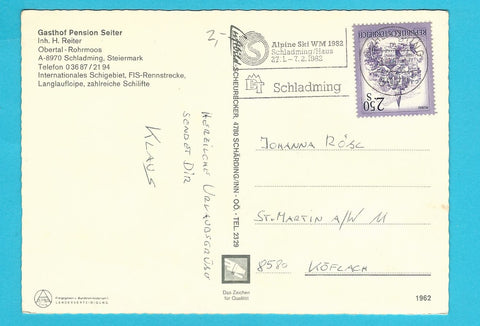 Gasthof Pension Seiter
Inh. H. Reiter
Obertal - Rohrmoos
A-8970 Schladming, Steiermark
Telefon 036 87 / 21 94
Internationales Schigebiet, FIS-Rennstrecke,
Langlaufloipe, zahlreiche Schilifte
2,-
Luftbild SCHEURECKER, 4780 SCHÄRDING/INN - OÖ. - TEL. 2329
Alpine Ski WM 1982
Schladming/Haus
Schladming
REPUBLIK ÖSTERREICH
2.50
S
HERZLICHE URLAUBSGRÜSSE
SENDET DIR
KLAUS
JOHANNA RÖSL
ST. MARTIN A/W 11
8580 KÖFLACH
Das Zeichen
für Qualität
1962